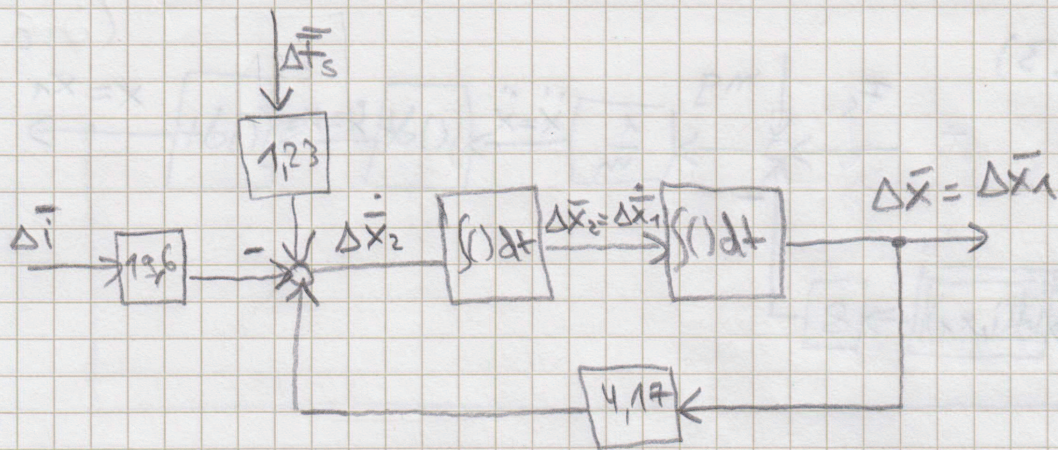 ΔF̄s
1,23
Δī
19,6
-
Δẋ̄₂
∫()dt
Δx̄₂=Δẋ̄₁
∫()dt
Δx̄ = Δx̄₁
4,17